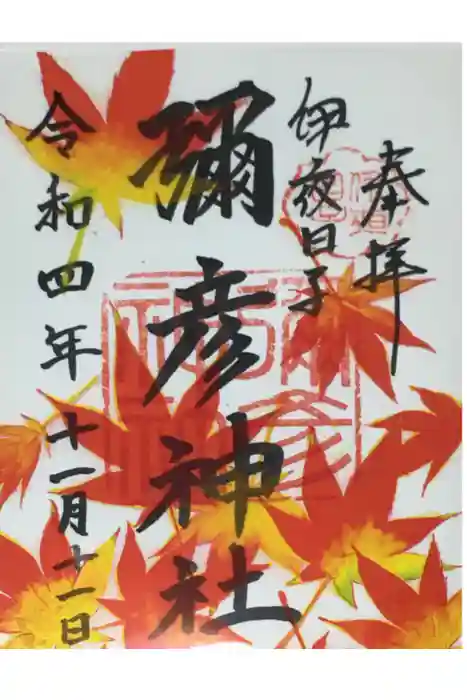 奉拝
伊夜日子
彌彦神社
令和四年十一月十一日